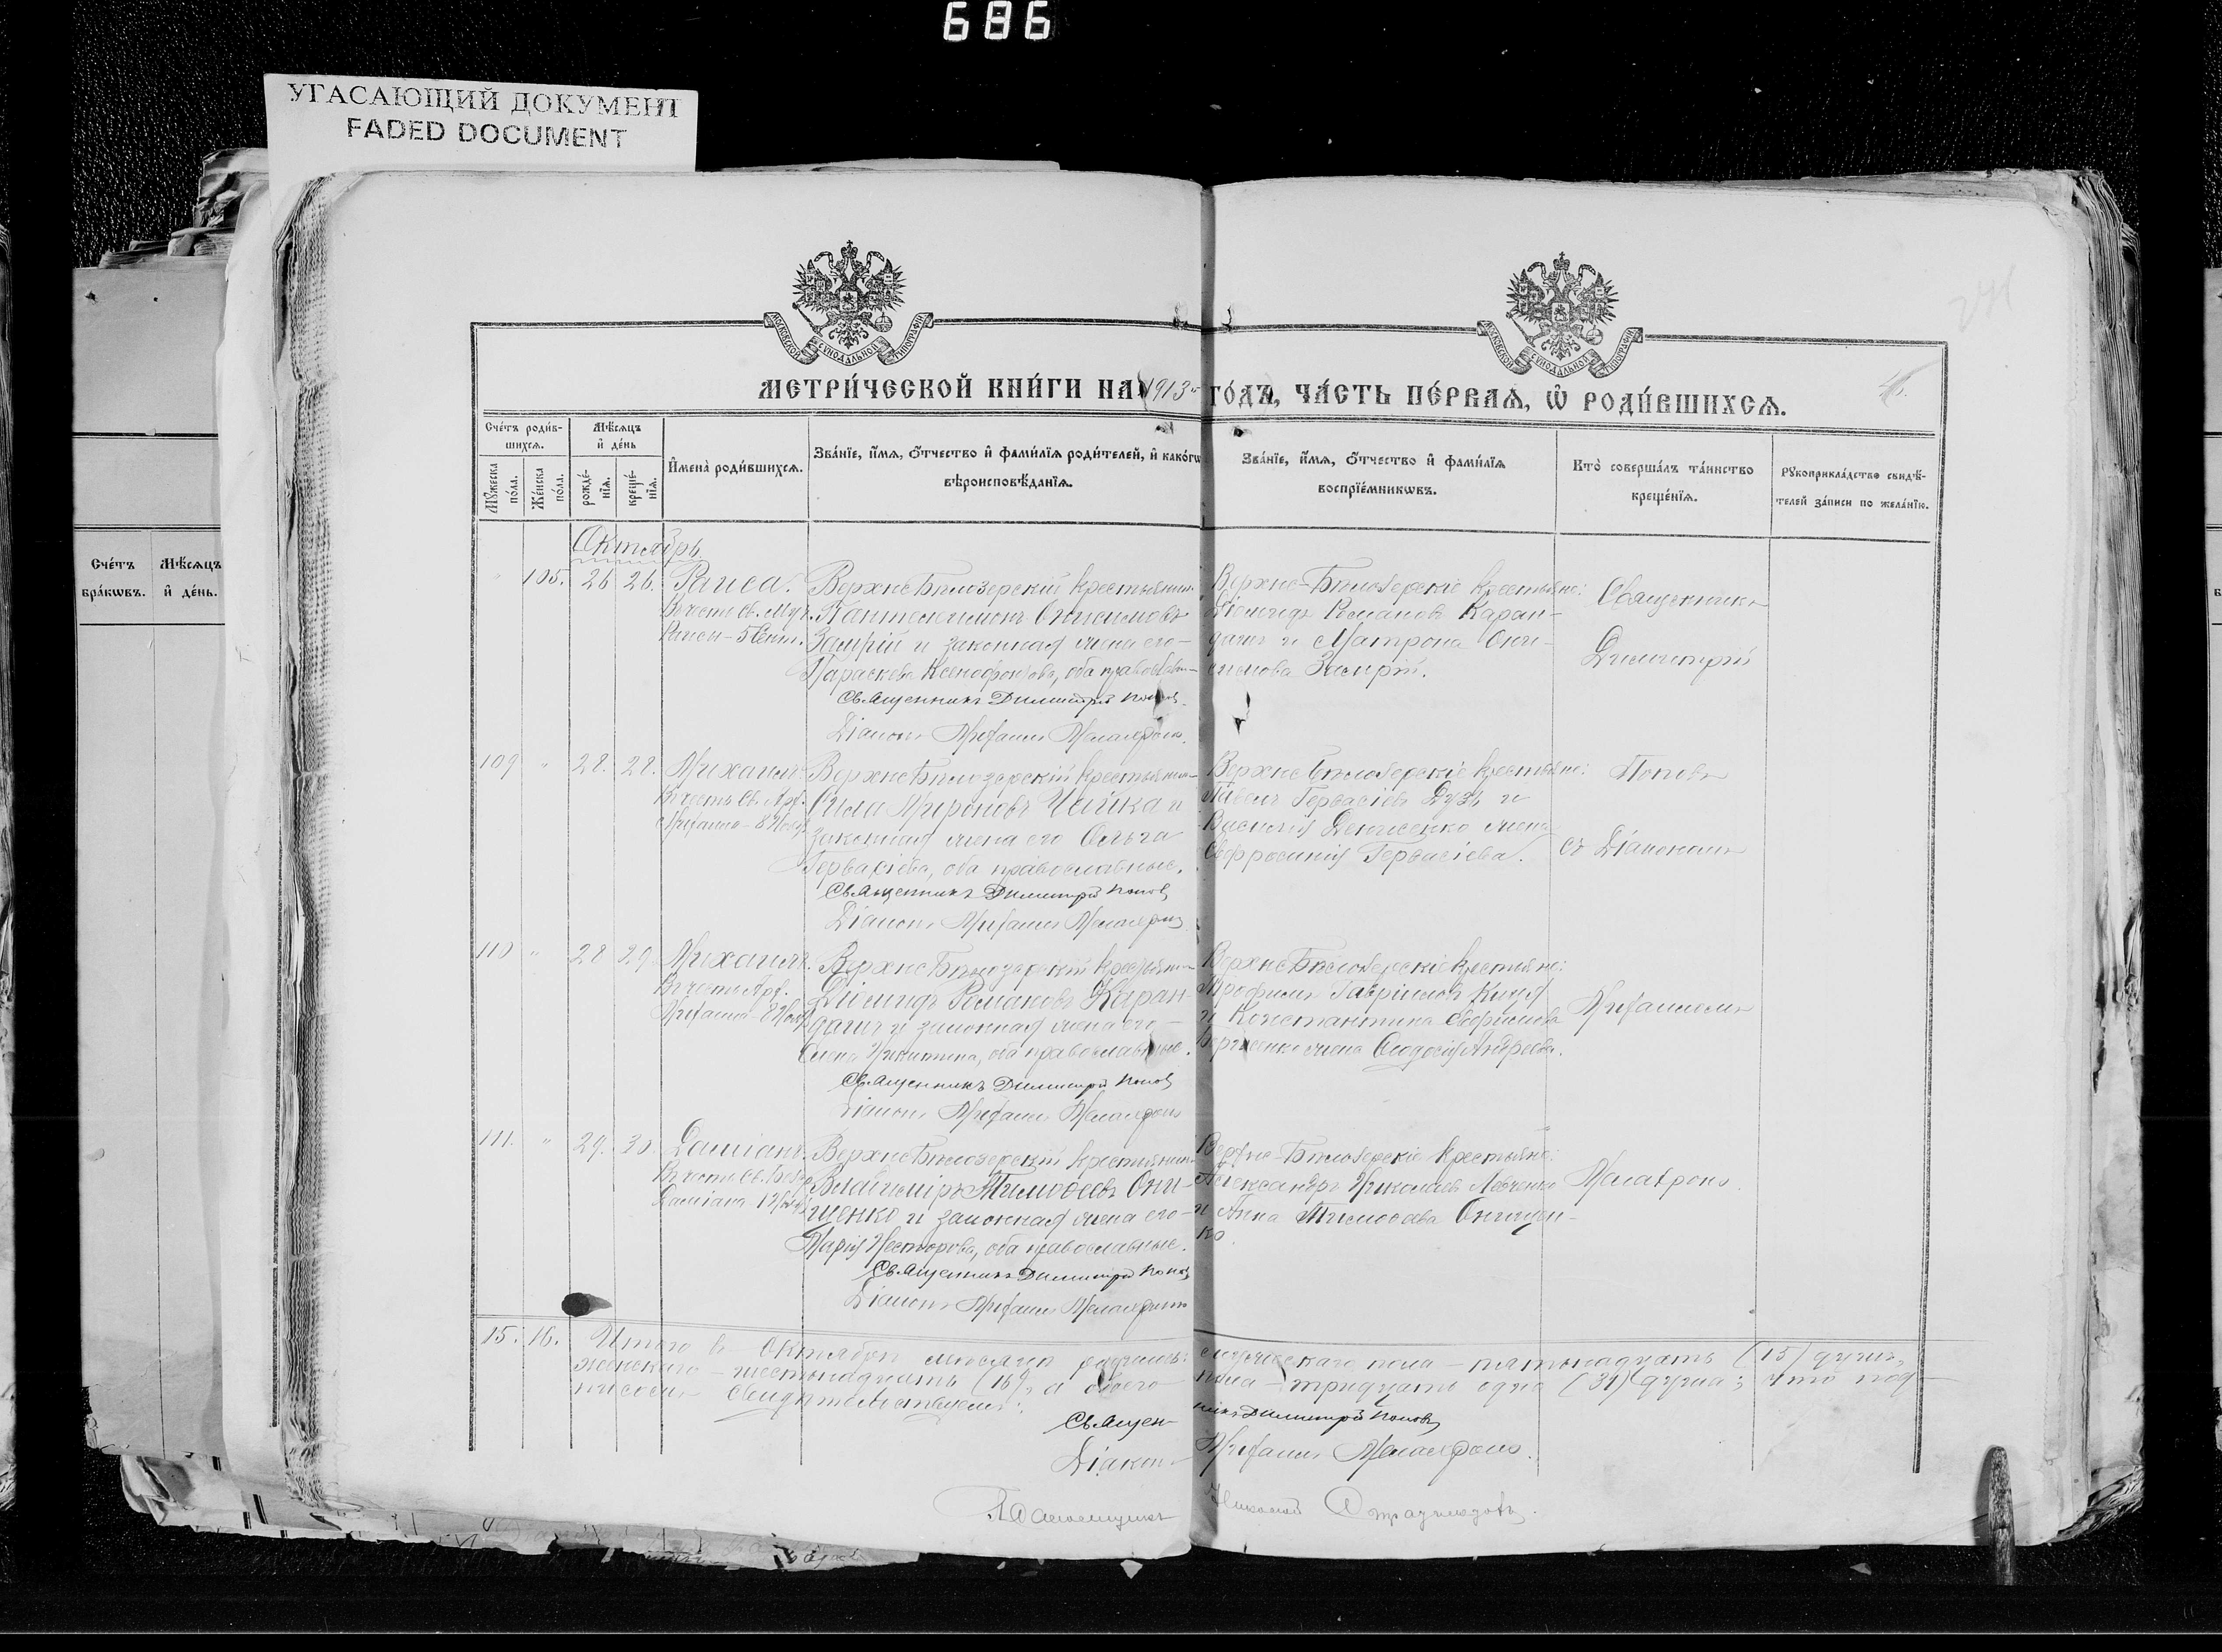 686
УГАСАЮЩИЙ ДОКУМЕНТ
FADED DOCUMENT
МОСКОВСКОЙ СѴНОДАЛЬНОЙ ТИПОГРАФІИ
МОСКОВСКОЙ СѴНОДАЛЬНОЙ ТИПОГРАФІИ
МЕТРИ́ЧЕСКОЙ КНИ́ГИ НА 1913 ГО́ДЪ, ЧА́СТЬ ПЕ́РВАѦ, Ѡ҆ РОДИ́ВШИХСѦ.
Сче́тъ роди́вшихсѧ.
Мѣ́сѧцъ и҆ де́нь
Мꙋ́жеска по́ла.
Же́нска по́ла.
рожде́нїѧ.
креще́нїѧ.
И҆мена̀ роди́вшихсѧ.
Зва́нїе, и҆́мѧ, ѻ҆́тчество и҆ фами́лїѧ роди́телей, и҆ како́гѡ
вѣроисповѣ́данїѧ.
Зва́нїе, и҆́мѧ, ѻ҆́тчество и҆ фами́лїѧ
воспрїе́мникѡвъ.
Кто̀ соверша́лъ та́инство
креще́нїѧ.
Рꙋкоприкла́дство свидѣ́телей за́писи по жела́нїю.
Сче́тъ
бра́кѡвъ.
Мѣ́сѧцъ
и҆ де́нь.
Октябрь.
" 105. 26 26. Раиса.
Въ честь Св. Муч.
Раисы - 5 Сент.
Верхне Бѣлозерскій крестьянинъ
Пантелеимонъ Онисимовъ
Замрій и законная жена его
Параскева Ксенофонтова, оба православн
Священникъ Димитрій Попов
Діаконъ
Верхне-Бѣлозерскіе крестьяне:
Діомидъ Романовъ Каран-
дашъ и Матрона Они-
симова Замрій.
Священникъ
Димитрій
109 " 28. 28. Михаилъ.
Въ честь Св. Арх.
Михаила - 8 Нояб.
Верхне Бѣлозерскій крестьянин
Сила Мироновъ Чайка и
законная жена его Ольга
Гервасіева, оба православные.
Священникъ Димитрій Попов
Діаконъ
Верхне Бѣлозерскіе крестьяне:
Павелъ Гервасіевъ Дузь и
Василія Денисенко жена
Евфросинія Гервасіева.
Поповъ
съ Діакономъ
110 " 28 29 Михаилъ.
Въ честь Арх.
Михаила - 8 Нояб.
Верхне Бѣлозерскій крестьянин
Діомидъ Романовъ Каран-
дашъ и законная жена его
Елена Никитина, оба православные.
Священникъ Димитрій Попов
Діаконъ
Верхне Бѣлозерскіе крестьяне:
Трофимъ Гавріиловъ
и Константина Евфимова
жена Феодосія Андреева.
111. " 29. 30. Даміанъ.
Даміана - 1 Нояб.
Верхне Бѣлозерскій крестьянин
Владиміръ Тимофеевъ Они-
щенко и законная жена его
Марія Несторова, оба православные.
Священникъ Димитрій Попов
Діаконъ
Верхне-Бѣлозерскіе крестьяне:
Александръ Николаевъ Левченко
и Анна Тимофеева Онищен-
ко.
15. 16. Итого въ Октябрѣ мѣсяцѣ родилось: мужескаго пола - пятнадцать (15) душъ,
женскаго - шестнадцать (16), а обоего пола - тридцать одна (31) душа; что под-
писомъ свидѣтельствуемъ:
Священникъ Димитрій Поповъ
Діаконъ
Псаломщикъ Николай